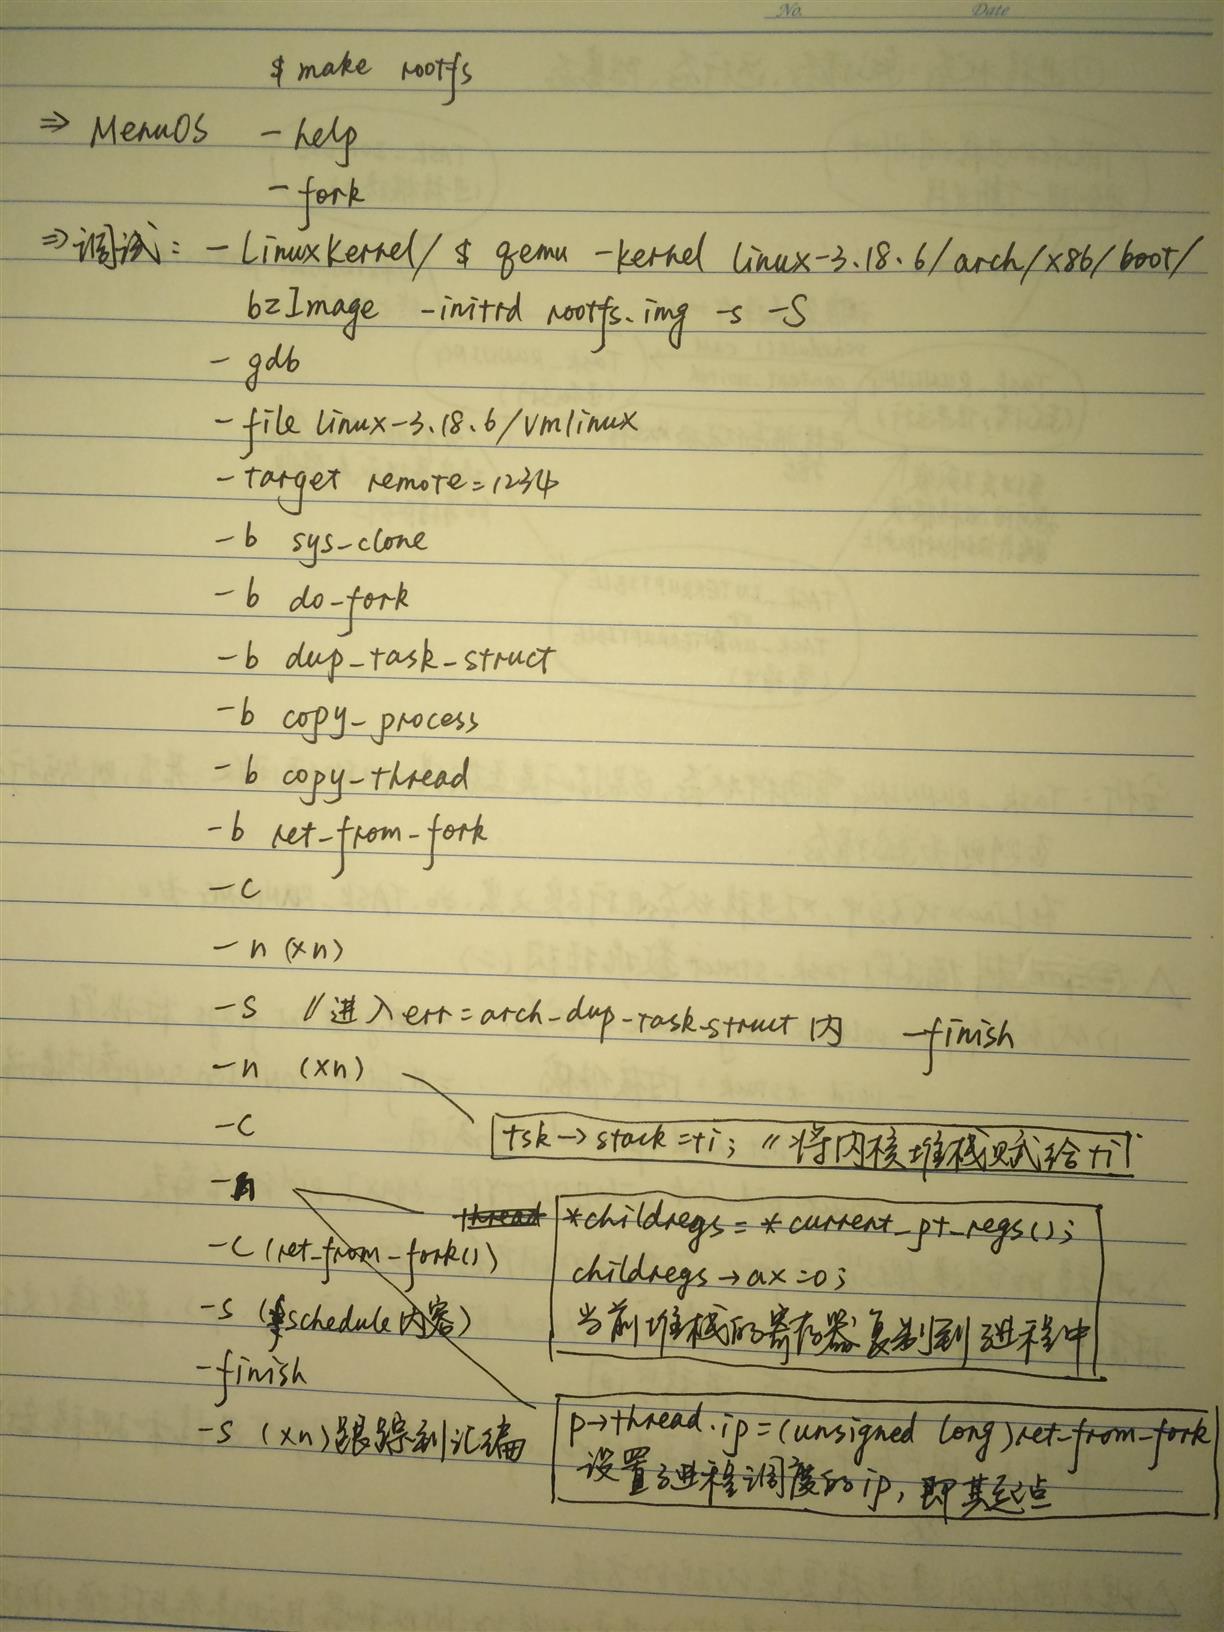 No.    Date
$ make rootfs
⇒ MenuOS  - help
- fork
⇒ 调试: - LinuxKernel/ $ qemu -kernel linux-3.18.6/arch/x86/boot/
bzImage -initrd rootfs.img -s -S
- gdb
- file linux-3.18.6/vmlinux
- target remote=1234
- b sys_clone
- b do_fork
- b dup_task_struct
- b copy_process
- b copy_thread
- b ret_from_fork
- c
- n (xn)
- s //进入err=arch_dup_task_struct内  -finish
- n (xn)
- c
tsk→stack=ti; //将内核堆栈赋给ti
- n
thread *childregs = *current_pt_regs();
- c (ret_from_fork())
childregs→ax=0;
- s (schedule内容)
当前堆栈的寄存器复制到子进程中
- finish
p→thread.ip=(unsigned long)ret_from_fork
- s (xn)跟踪到汇编
设置子进程调度的ip, 即其起点